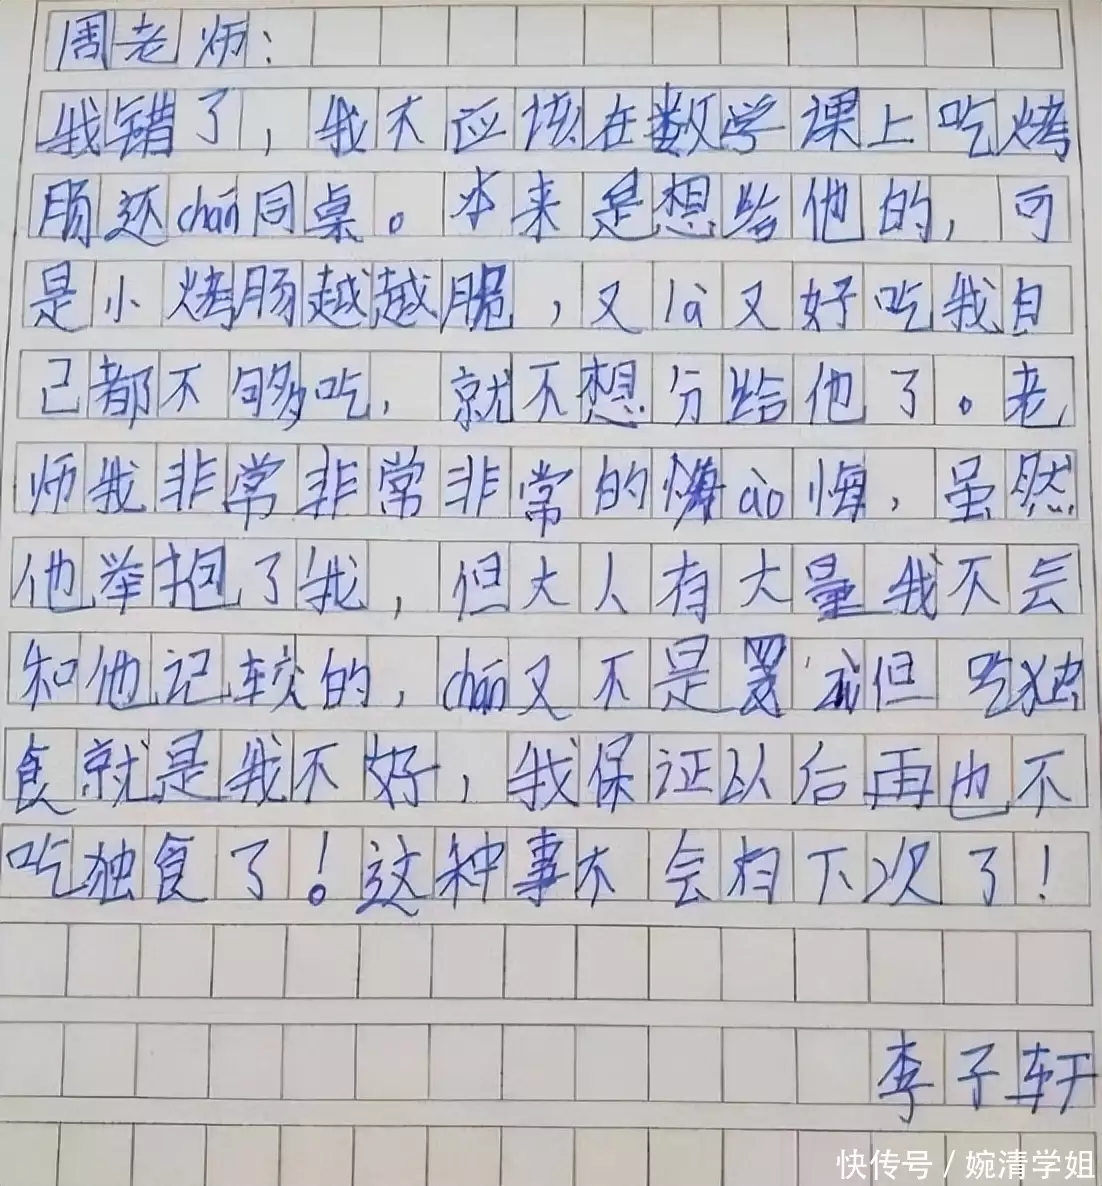 周老师：
我错了，我不应该在数学课上吃烤
肠还chán同桌。本来是想给他的，可
是小烤肠越越脆，又là又好吃我自
己都不够吃，就不想分给他了。老
师我非常非常非常的懊ào悔，虽然
他举抱了我，但大人有大量我不会
和他记较的，chán又不是罪 但吃独
食就是我不好，我保证以后再也不
吃独食了！这种事不会有下次了！
李子轩
快传号/婉清学姐